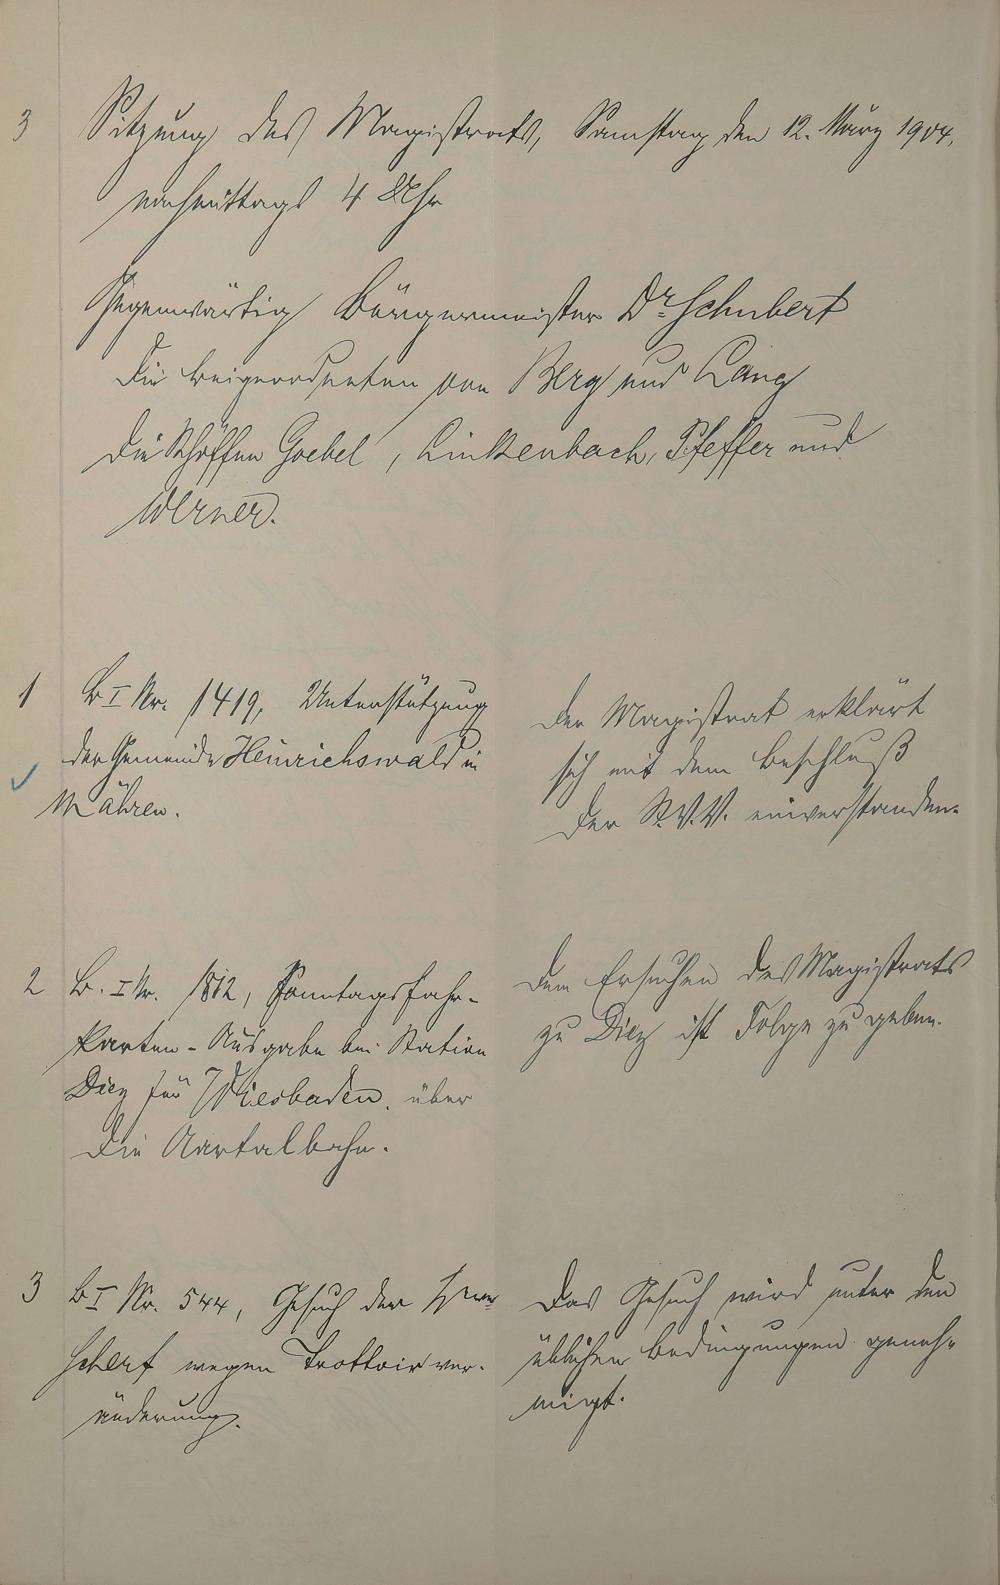 3 Sitzung des Magistrats, Samstag den 12. März 1904,
nachmittags 4 Uhr
Gegenwärtig Bürgermeister Dr. Schubert
die Beigeordneten von Berg und Lang
die Schöffen Goebel, Linkenbach, Pfeffer und
Werner.
1 B I Nr. 1419, Unterstützung
der Gemeinde Heinrichswald in
Mähren.
Der Magistrat erklärt
sich mit dem Beschluß
der St.V.V. einverstanden.
2 B. I Nr. 1812, Sonntagsfahr-
karten-Ausgabe bei Station
Diez für Wiesbaden über
die Aartalbahn.
Dem Ersuchen des Magistrats
zu Diez ist Folge zu geben.
3 B I Nr. 544, Gesuch der
Scherf wegen Trottoirver-
änderung.
Das Gesuch wird unter den
üblichen Bedingungen geneh-
migt.